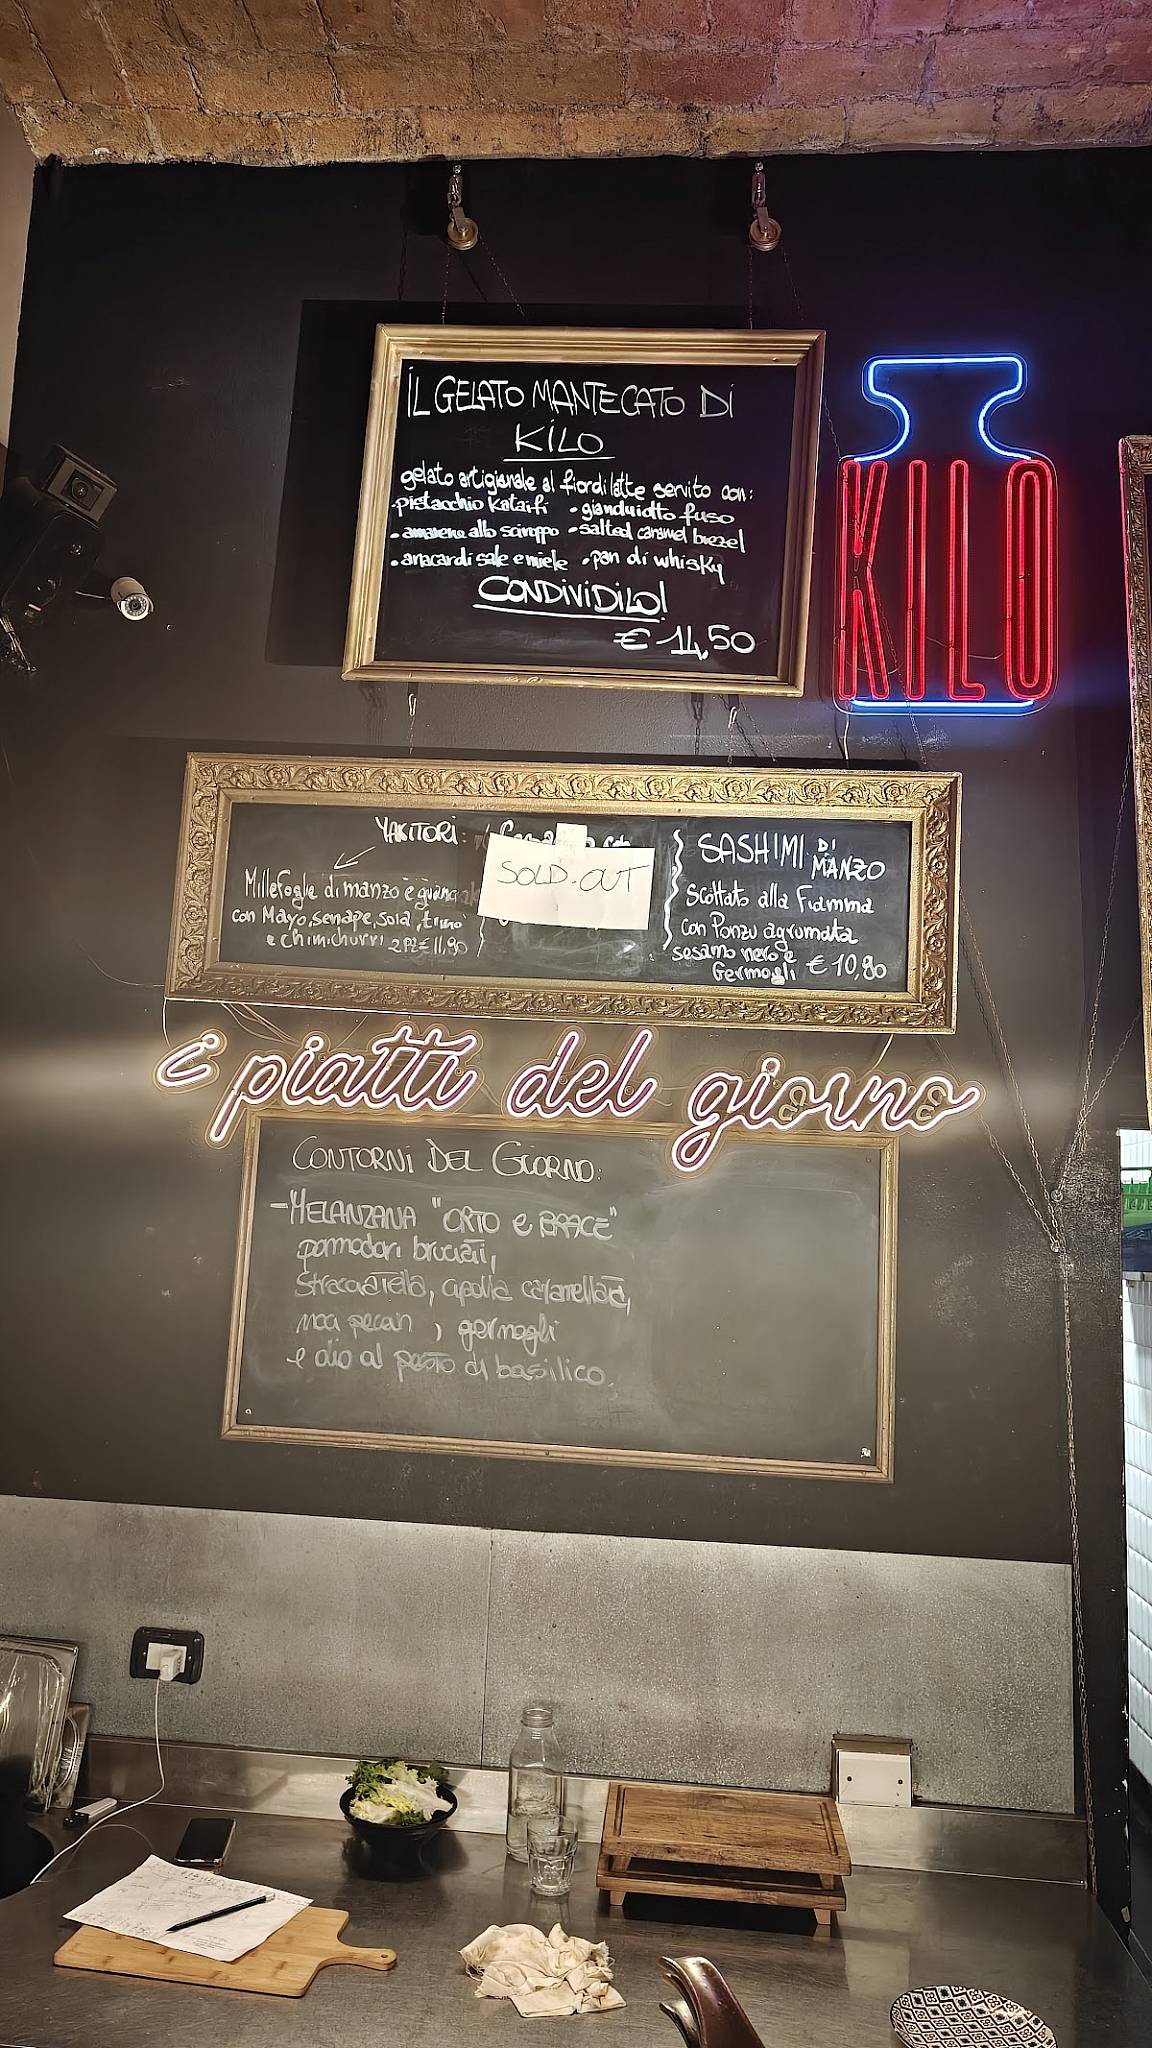 IL GELATO MANTECATO DI
KILO
gelato artigianale al fiordilatte servito con:
•pistacchio kataifi •gianduiotto fuso
•amarene allo sciroppo •salted caramel brezel
•anacardi sale e miele •pan di whisky
CONDIVIDILO!
€ 14,50
KILO
YAKITORI:
Millefoglie di manzo e
con Mayo, senape, soia, timo
e chimichurri 2PZ € 11,90
SOLD-OUT
SASHIMI DI
MANZO
Scottato alla Fiamma
con Ponzu agrumata
sesamo nero e
Germogli € 10,90
i piatti del giorno
CONTORNI DEL GIORNO:
-MELANZANA "ORTO e BRACE"
pomodori bruciati,
stracciatella, cipolla caramellata,
noci pecan , germogli
e olio al pesto di basilico.